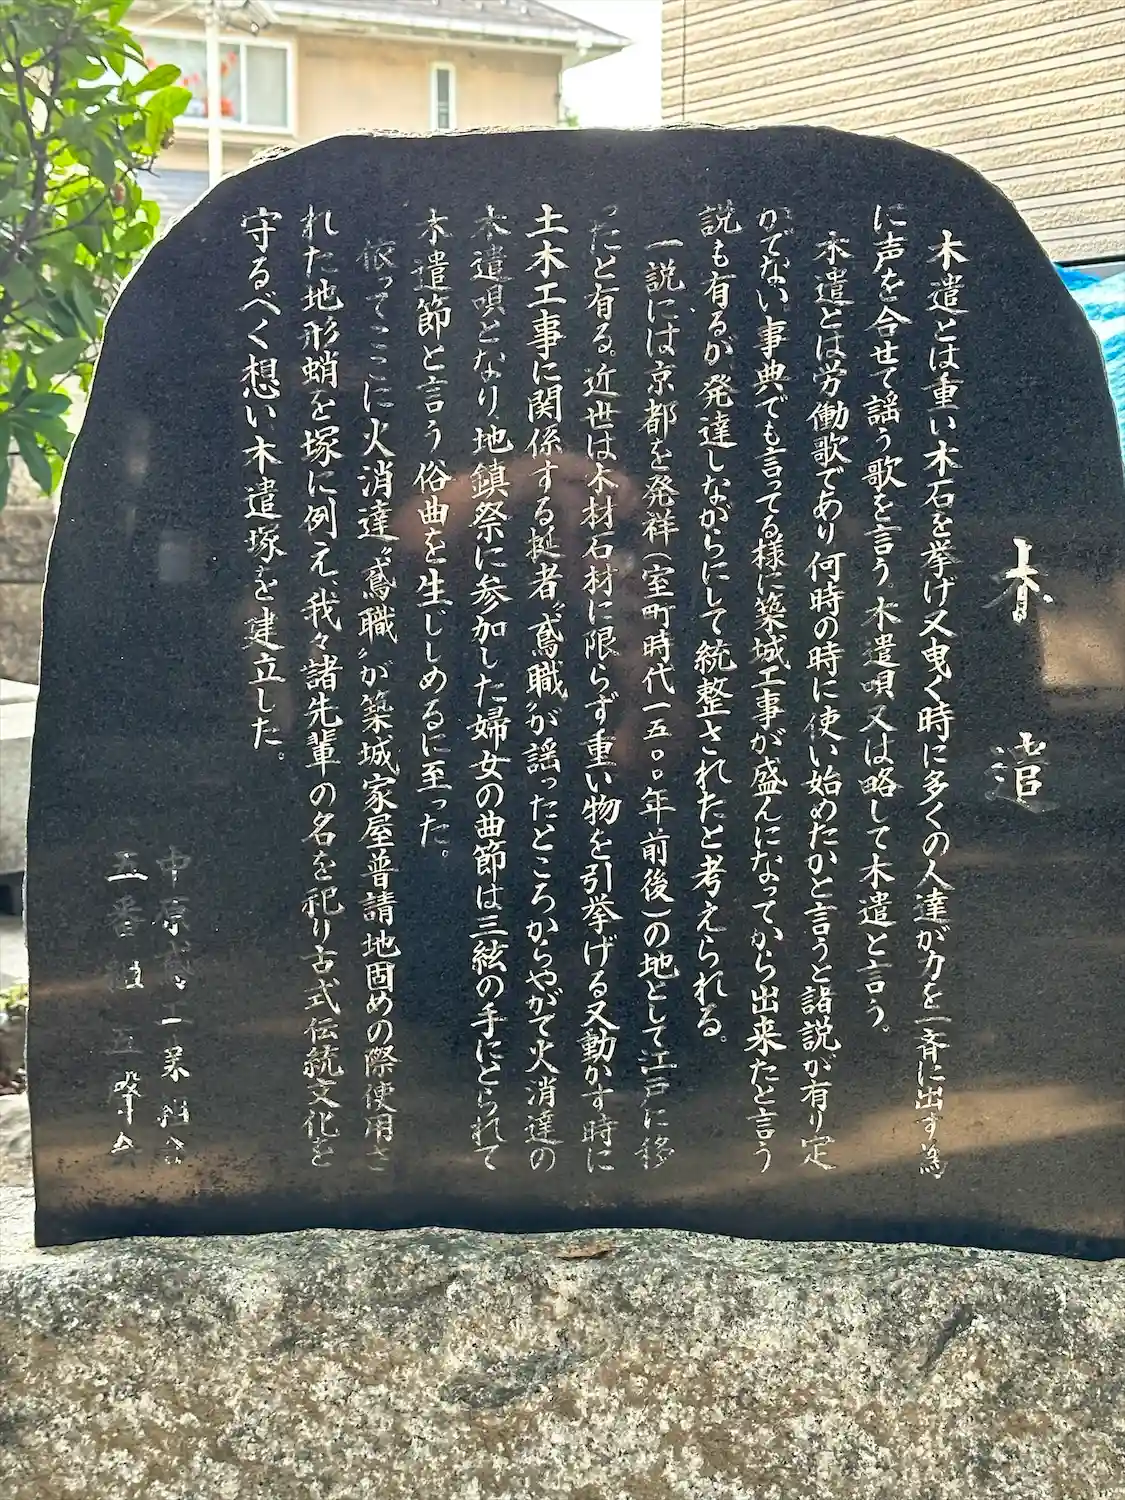 木遣
木遣とは重い木石を挙げ又曳く時に多くの人達が力を一斉に出す為
に声を合せて謡う歌を言う。木遣唄又は略して木遣と言う。
木遣とは労働歌であり何時の時に使い始めたかと言うと諸説が有り定
かでない事典でも言ってる様に築城工事が盛んになってから出来たと言う
説も有るが発達しながらにして統整されたと考えられる。
一説には京都を発祥(室町時代一五〇〇年前後)の地として江戸に移
ったと有る。近世は木材石材に限らず重い物を引挙げる又動かす時に
土木工事に関係する挺者〝鳶職〟が謡ったところからやがて火消達の
木遣唄となり、地鎮祭に参加した婦女の曲節は三絃の手にとられて
木遣節と言う俗曲を生じしめるに至った。
依ってここに火消達〝鳶職〟が築城家屋普請地固めの際使用さ
れた地形蛸を塚に例え、我々諸先輩の名を祀り古式伝統文化を
守るべく想い木遣塚を建立した。
中原 一業組合
五番組